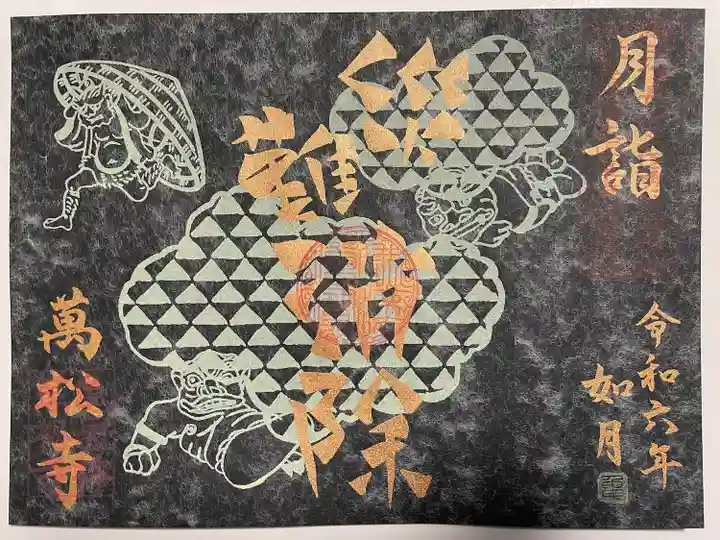 月詣
令和六年
如月
災難消除
萬松寺